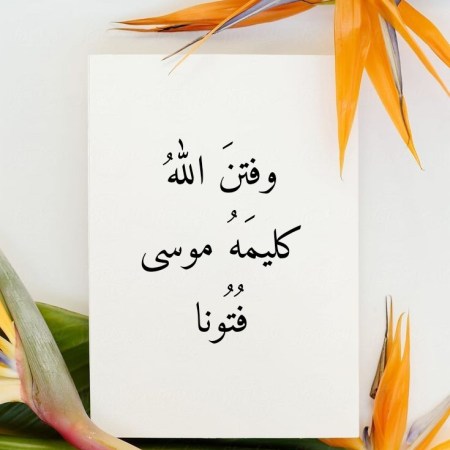 وفتنَ اللهُ
كليمَهُ موسى
فُتُونا